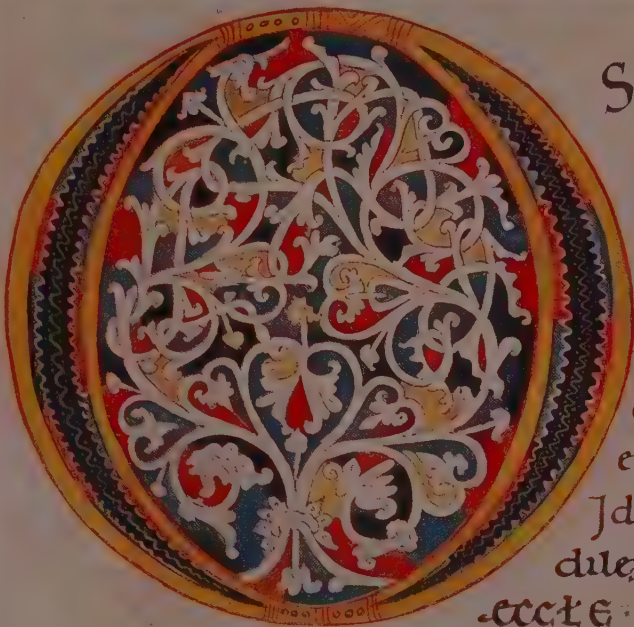 O
S
e
Jd
dile
eccłe